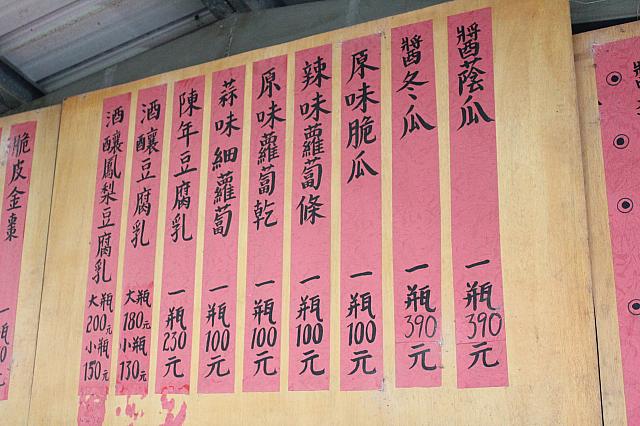 醬蔭瓜 一瓶390元
醬冬瓜 一瓶390元
原味脆瓜 一瓶100元
辣味蘿蔔條 一瓶100元
原味蘿蔔乾 一瓶100元
蒜味細蘿蔔 一瓶100元
陳年豆腐乳 一瓶230元
酒釀豆腐乳 大瓶180元 小瓶130元
酒釀鳳梨豆腐乳 大瓶200元 小瓶150元
脆皮金棗 一